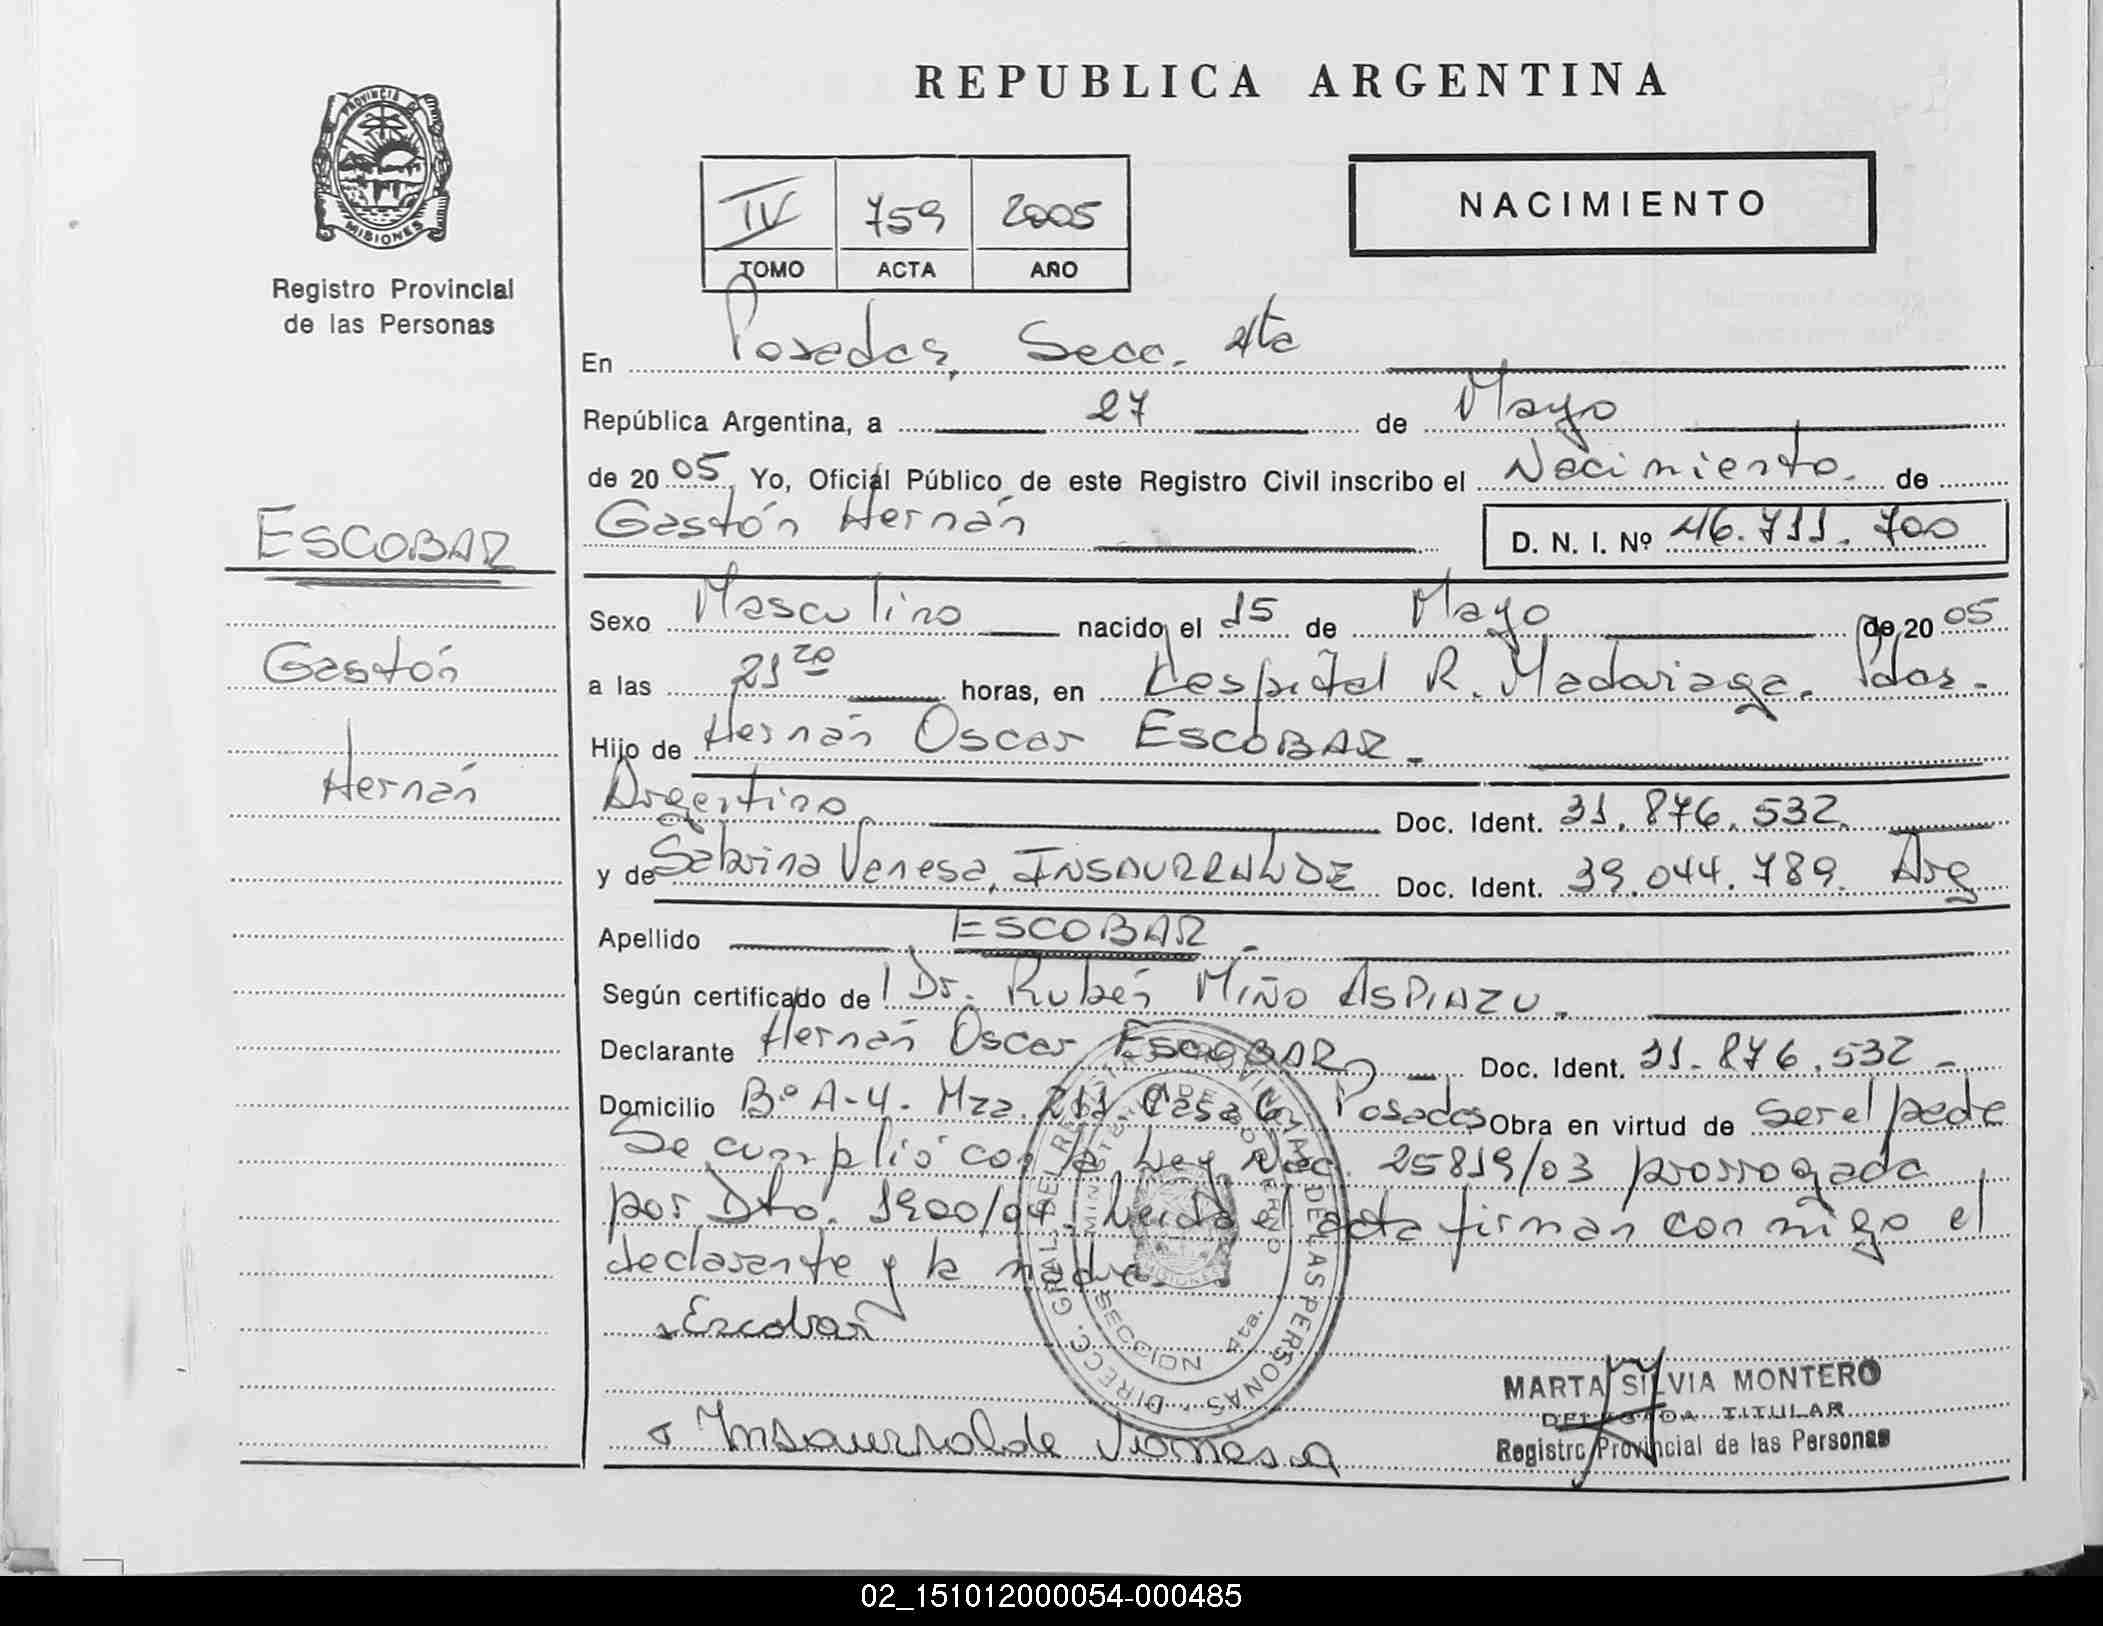 REPUBLICA ARGENTINA
PROVINCIA DE
MISIONES
Registro Provincial
de las Personas
IV 759 2005
TOMO ACTA AÑO
NACIMIENTO
En Posadas, Secc. 4ta
República Argentina, a 27 de Mayo
de 20 05 Yo, Oficial Público de este Registro Civil inscribo el Nacimiento. de
Gastón Hernán D. N. I. Nº 46.711.700
ESCOBAR
Gastón
Hernán
Sexo Masculino nacido el 15 de Mayo de 20 05
a las 21 20 horas, en Hospital R. Madariaga. Pdas.-
Hijo de Hernán Oscar ESCOBAR.-
Argentino Doc. Ident. 31.876.532.
y de Sabrina Vanesa, INSAURRALDE Doc. Ident. 39.044.789. Arg
Apellido ESCOBAR.-
Según certificado de Dr. Rubén MIÑO ASPIAZU.-
Declarante Hernán Oscar ESCOBAR Doc. Ident. 31.876.532.-
Domicilio Bº A-4. Mza. 211 Casa Posadas Obra en virtud de ser el padre
Se cumplió con la Ley Nac. 25819/03 prorrogada
por Dto. 1900/04. Leída el acta firman conmigo el
declarante y la madre.
Escobar
Insaurralde Vanessa
DIRECC. GRAL. DEL REGISTRO PROVINCIAL DE LAS PERSONAS
MINISTERIO DE GOBIERNO
MISIONES
SECCION 4ta.
MARTA SILVIA MONTERO
DELEGADA TITULAR
Registro Provincial de las Personas
02_151012000054-000485